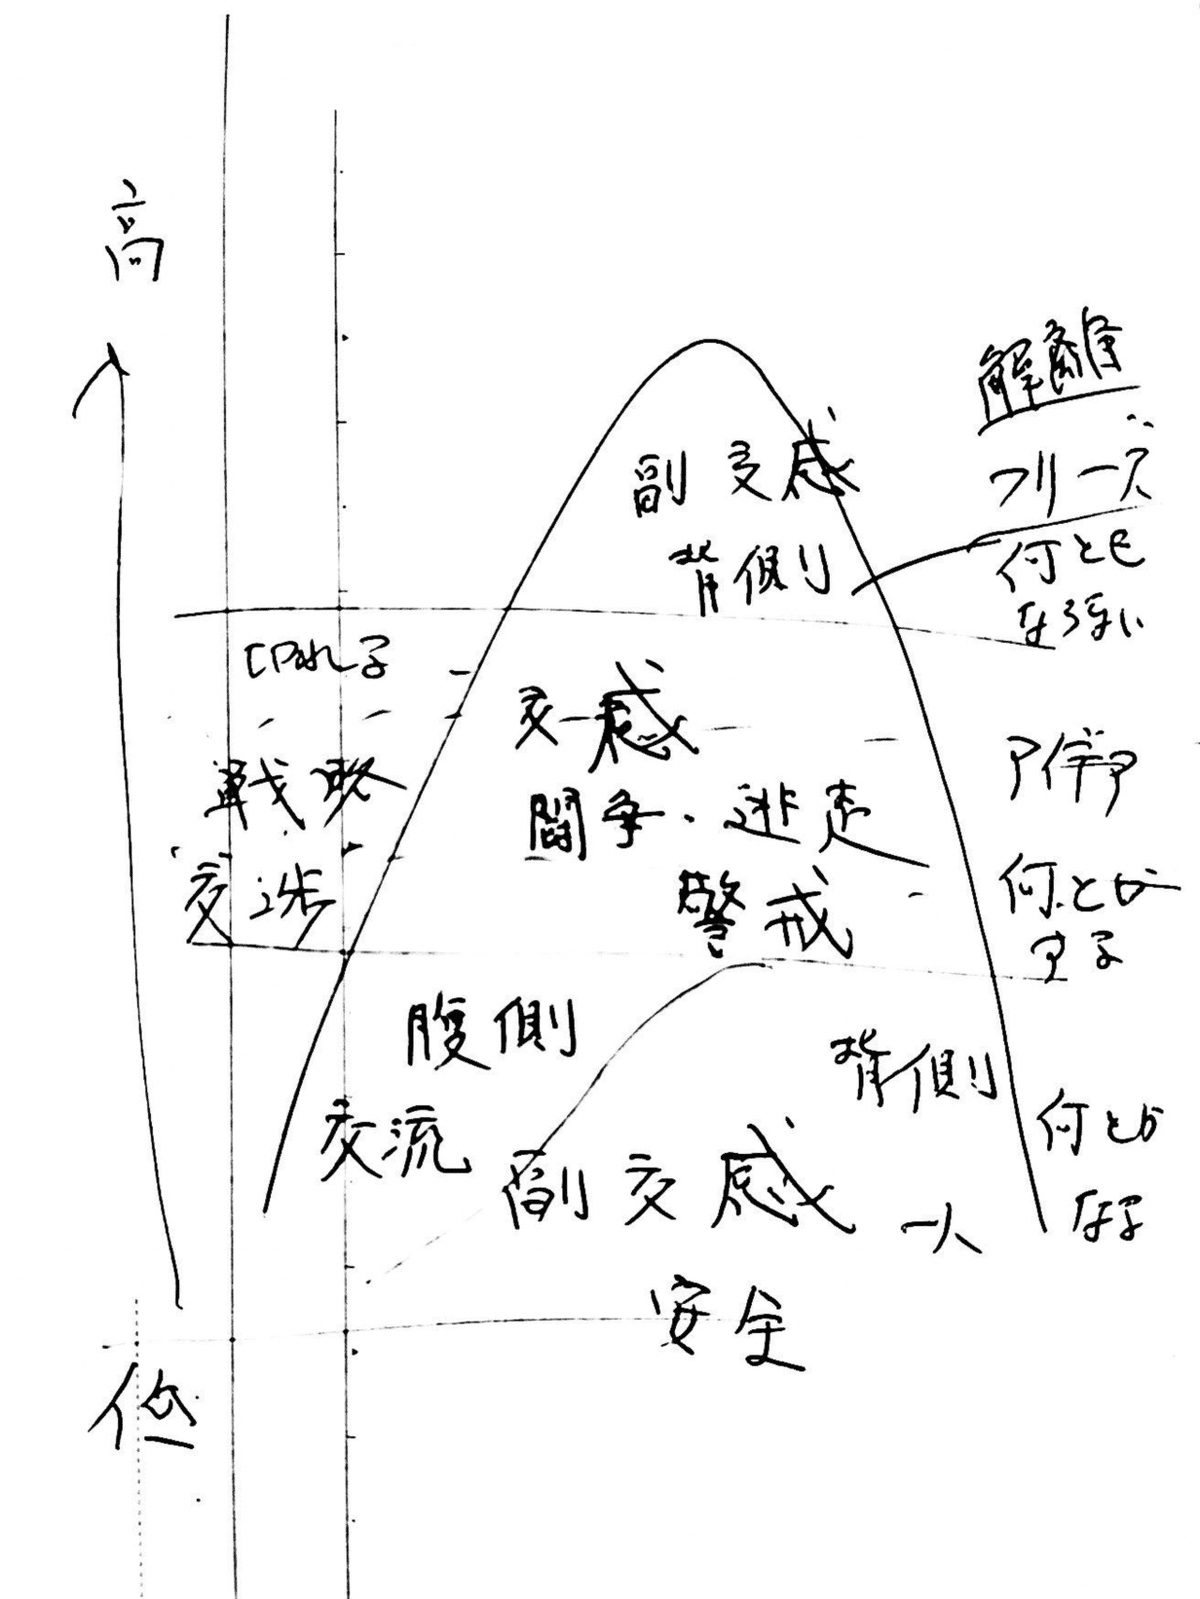 高
解離
フリーズ
副交感
背側
何とも
ならない
切れる
交感
戦略
闘争・逃走
交渉
警戒
何とか
する
腹側
背側
交流
副交感
一人
何とか
なる
安全
低